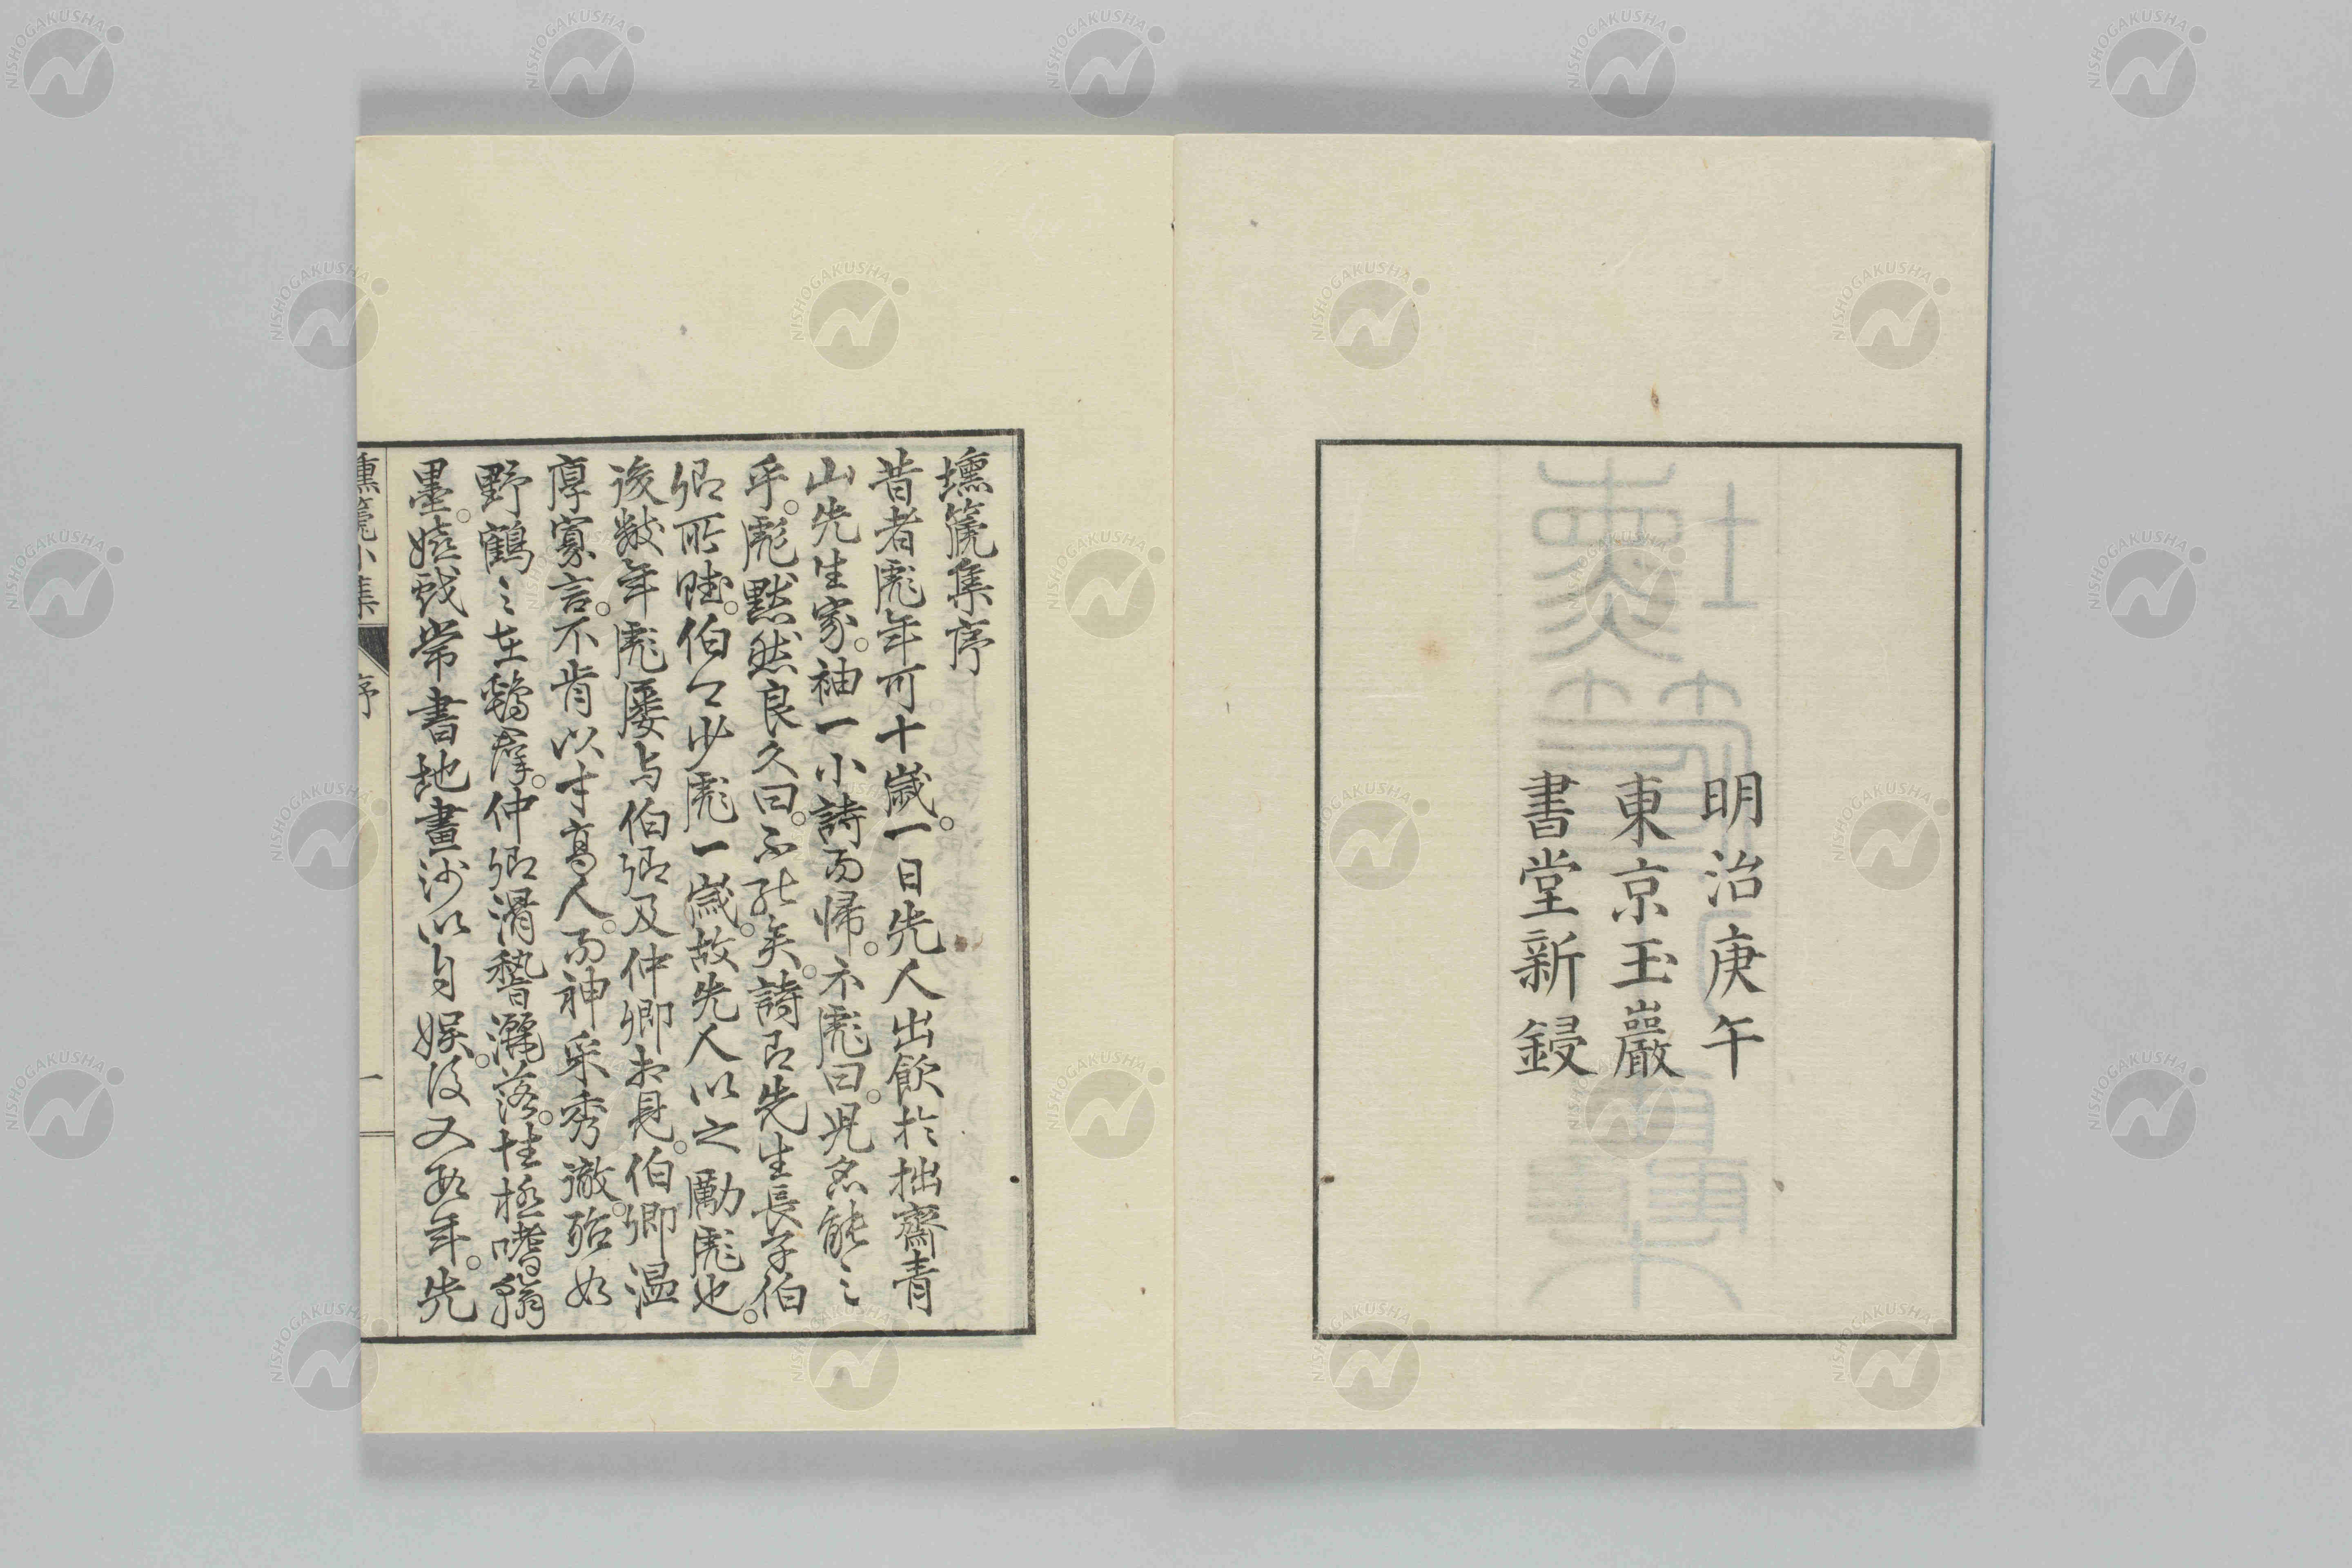 明治庚午
東京玉巖
書堂新鋟
壎篪集序
昔者彪年可十歲。一日先人出飲於拙齋青
山先生家。袖一小詩而歸。示彪曰。児名能〻
乎。彪黙然良久曰。不能矣。詩乃先生長子伯
卿所賦。伯〻少彪一歲。故先人以之勵彪也。
後數年彪屢与伯卿及仲卿相見。伯卿温
厚寡言。不肯以才高人。而神采秀徹。殆如
野鶴〻在鷄群。仲卿滑稽灑落。性極嗜翰
墨。嬉戲常書地畫沙以自娯。後又數年。先
壎篪小集
序
一
NISHOGAKUSHA